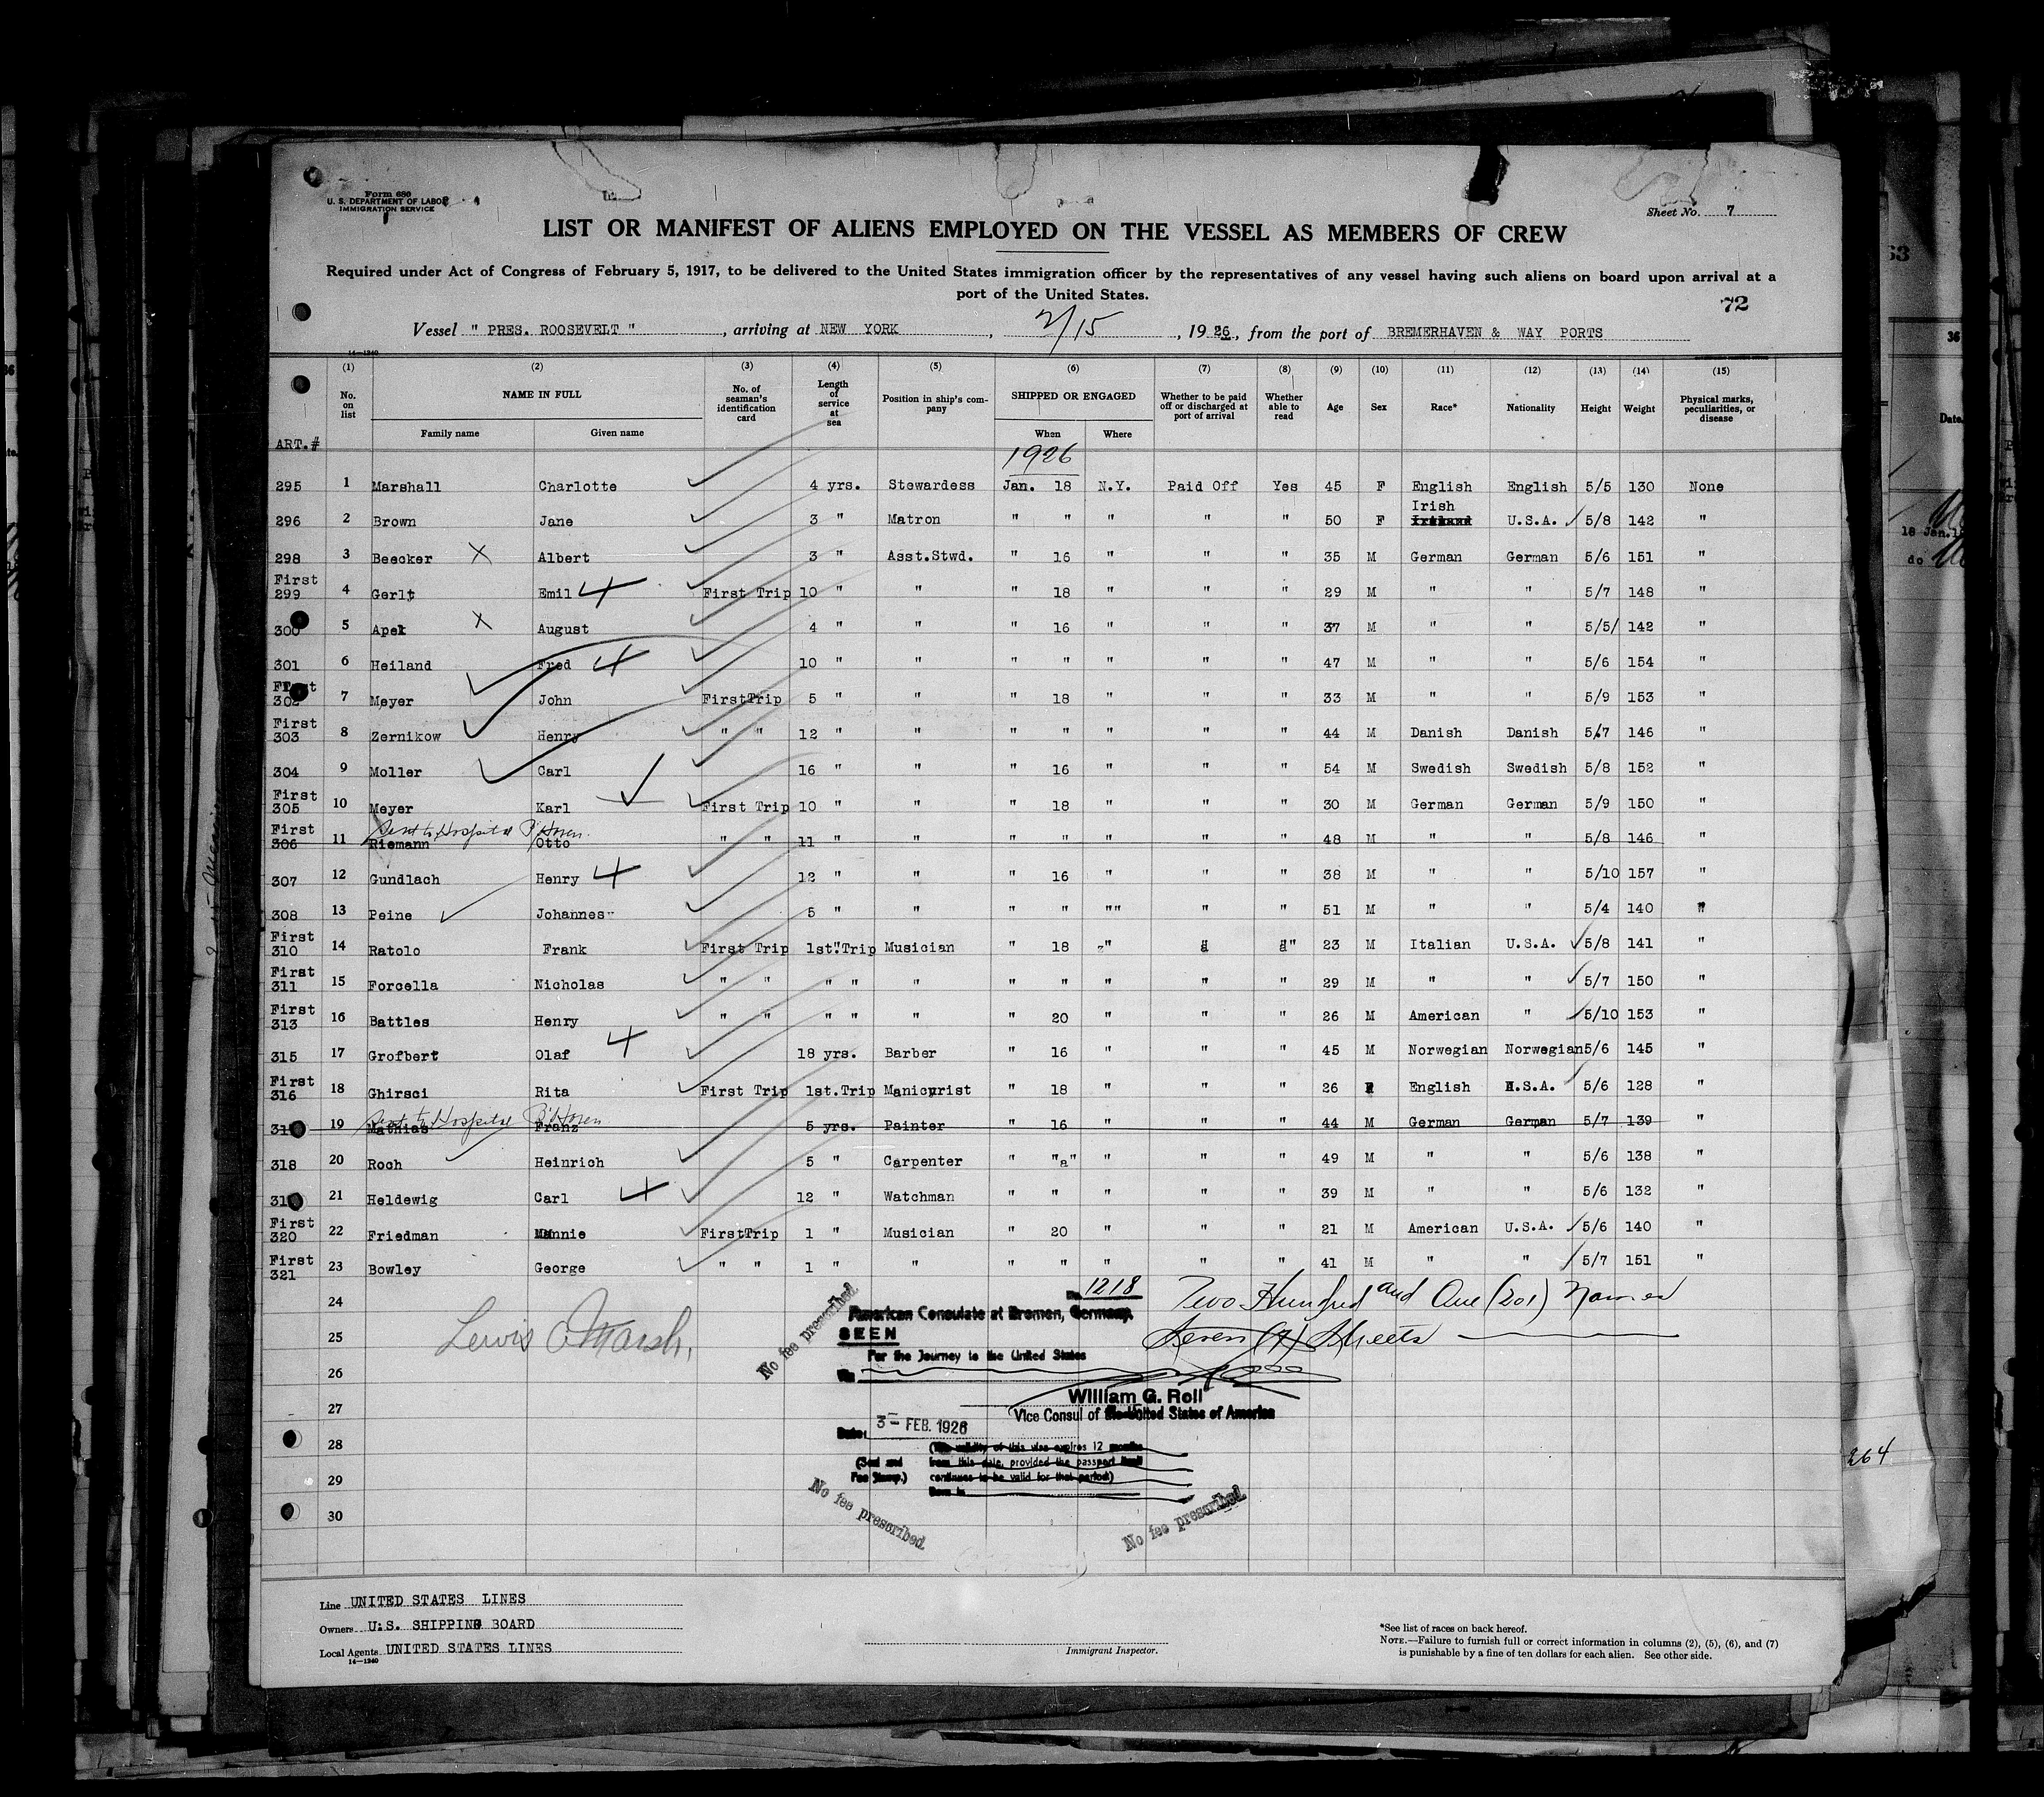 Form 680
U. S. DEPARTMENT OF LABOR
IMMIGRATION SERVICE
Sheet No. 7
LIST OR MANIFEST OF ALIENS EMPLOYED ON THE VESSEL AS MEMBERS OF CREW
Required under Act of Congress of February 5, 1917, to be delivered to the United States immigration officer by the representatives of any vessel having such aliens on board upon arrival at a
port of the United States.
72
Vessel " PRES. ROOSEVELT " , arriving at NEW YORK , 2/15 , 1926, from the port of BREMERHAVEN & WAY PORTS
14—1240
(1) (2) (3) (4) (5) (6) (7) (8) (9) (10) (11) (12) (13) (14) (15)
No. on list NAME IN FULL No. of seaman's identification card Length of service at sea Position in ship's company SHIPPED OR ENGAGED Whether to be paid off or discharged at port of arrival Whether able to read Age Sex Race* Nationality Height Weight Physical marks, peculiarities, or disease
ART.# Family name Given name When Where
1926
295 1 Marshall Charlotte 4 yrs. Stewardess Jan. 18 N.Y. Paid Off Yes 45 F English English 5/5 130 None
Irish
296 2 Brown Jane 3 " Matron " " " " " 50 F Ireland U.S.A. 5/8 142 "
298 3 Beecker X Albert 3 " Asst.Stwd. " 16 " " " 35 M German German 5/6 151 "
First
299 4 Gerlt Emil First Trip 10 " " " 18 " " " 29 M " " 5/7 148 "
300 5 Apel X August 4 " " " 16 " " " 37 M " " 5/5/ 142 "
301 6 Heiland Fred 10 " " " " " " " 47 M " " 5/6 154 "
First
302 7 Meyer John FirstTrip 5 " " " 18 " " " 33 M " " 5/9 153 "
First
303 8 Zernikow Henry " " 12 " " " " " " " 44 M Danish Danish 5/7 146 "
304 9 Moller Carl 16 " " " 16 " " " 54 M Swedish Swedish 5/8 152 "
First
305 10 Meyer Karl First Trip 10 " " " 18 " " " 30 M German German 5/9 150 "
First Sent to Hospital B'Haven.
306 11 Riemann Otto " " 11 " " " " " " " 48 M " " 5/8 146 "
307 12 Gundlach Henry 12 " " " 16 " " " 38 M " " 5/10 157 "
308 13 Peine Johannes 5 " " " " "" " " 51 M " " 5/4 140 "
First
310 14 Ratolo Frank First Trip 1st.Trip Musician " 18 " " " 23 M Italian U.S.A. 5/8 141 "
First
311 15 Forcella Nicholas " " " " " " " " " " 29 M " " 5/7 150 "
First
313 16 Battles Henry " " " " " " 20 " " " 26 M American " 5/10 153 "
315 17 Grofbert Olaf 18 yrs. Barber " 16 " " " 45 M Norwegian Norwegian 5/6 145 "
First
316 18 Ghirsci Rita First Trip 1st.Trip Manicurist " 18 " " " 26 F English U.S.A. 5/6 128 "
Sent to Hospital B'Haven
19 Mathias Franz 5 yrs. Painter " 16 " " " 44 M German German 5/7 139 "
318 20 Roch Heinrich 5 " Carpenter " "a" " " " 49 M " " 5/6 138 "
21 Heldewig Carl 12 " Watchman " " " " " 39 M " " 5/6 132 "
First
320 22 Friedman Mannie FirstTrip 1 " Musician " 20 " " " 21 M American U.S.A. 5/6 140 "
First
321 23 Bowley George " " 1 " " " " " " " 41 M " " 5/7 151 "
24
25
26
27
28
29
30
Lewis C. Marsh.
No. 1218
American Consulate at Bremen, Germany.
SEEN
For the Journey to the United States
Via
Two Hundred and One (201) Names
Seven (7) Sheets
William G. Roll
Vice Consul of the United States of America
Date: 3 - FEB. 1926
(The validity of this visa expires 12 months
from this date, provided the passport itself
continues to be valid for that period)
Born in
(Seal and
Fee Stamp.)
No fee prescribed.
No fee prescribed.
No fee prescribed.
Line UNITED STATES LINES
Owners U.S. SHIPPING BOARD
Local Agents UNITED STATES LINES
14—1240
Immigrant Inspector.
*See list of races on back hereof.
NOTE.—Failure to furnish full or correct information in columns (2), (5), (6), and (7)
is punishable by a fine of ten dollars for each alien. See other side.
264
63
36
Date.
18 Jan.
do